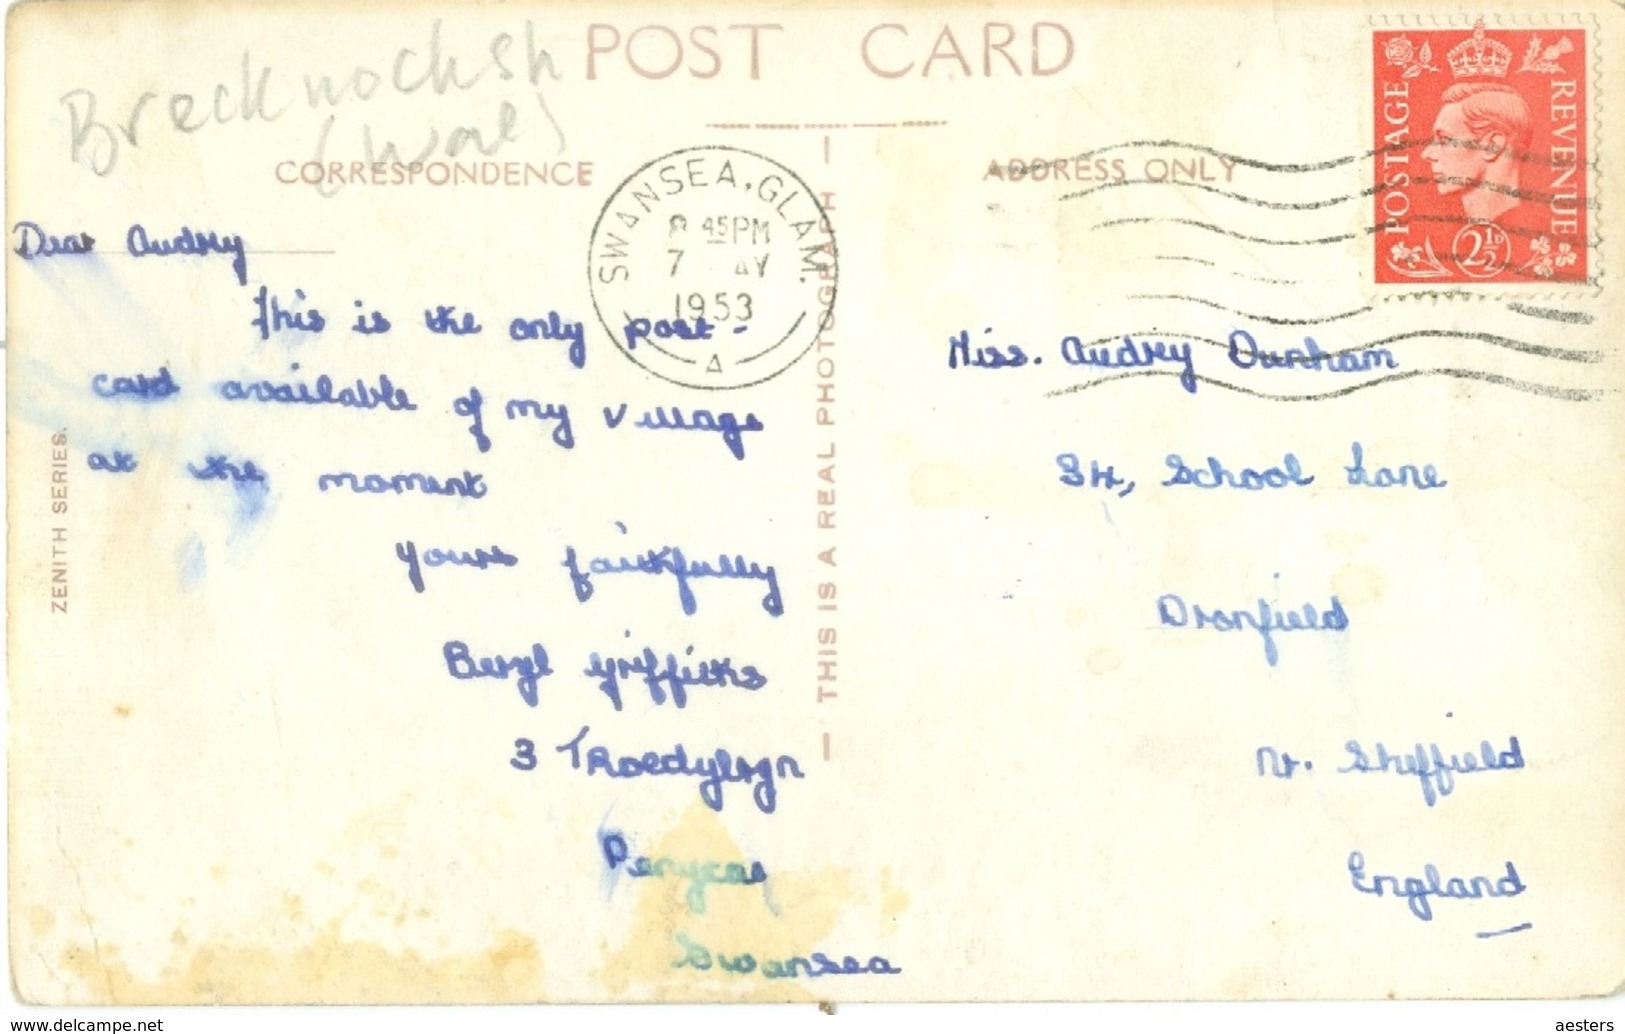 Brecknocksh
(Wal)
POST CARD
CORRESPONDENCE
ADDRESS ONLY
SWANSEA, GLAM.
8 45 PM
7 AY
1953
A
POSTAGE
REVENUE
2½D
Dear Audrey
This is the only post-
card available of my village
at the moment
yours faithfully
Beryl Griffiths
Penycae
Swansea
ZENITH SERIES.
— THIS IS A REAL PHOTOGRAPH —
Miss. Audrey Dunham
34, School Lane
Dronfield
Nr. Sheffield
England
www.delcampe.net
aesters